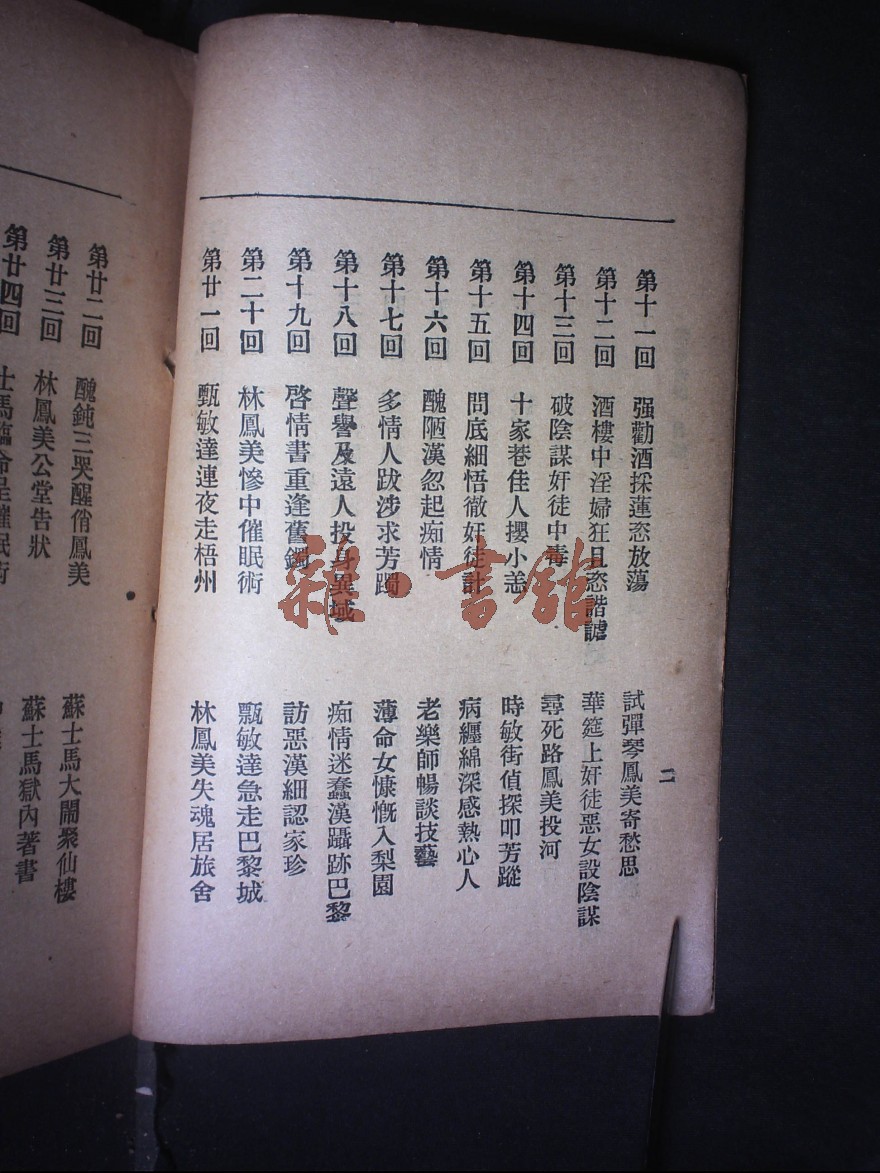 二
第十一回 强勸酒採蓮恣放蕩 試彈琴鳳美寄愁思
第十二回 酒樓中淫婦狂且恣諧謔 華筵上奸徒惡女設陰謀
第十三回 破陰謀奸徒中毒 尋死路鳳美投河
第十四回 十家巷佳人攖小恙 時敏街偵探叩芳蹤
第十五回 問底細悟徹奸徒計 病纏綿深感熱心人
第十六回 醜陋漢忽起痴情 老樂師暢談技藝
第十七回 多情人跋涉求芳躅 薄命女慷慨入梨園
第十八回 聲譽及遠人投身異域 痴情迷蠢漢躡跡巴黎
第十九回 啓情書重逢舊鐲 訪惡漢細認家珍
第二十回 林鳳美慘中催眠術 甄敏達急走巴黎城
第廿一回 甄敏達連夜走梧州 林鳳美失魂居旅舍
第廿二回 醜鈍三哭醒俏鳳美 蘇士馬大鬧聚仙樓
第廿三回 林鳳美公堂告狀 蘇士馬獄內著書
第廿四回 士馬臨命呈催眠術
雜·書館